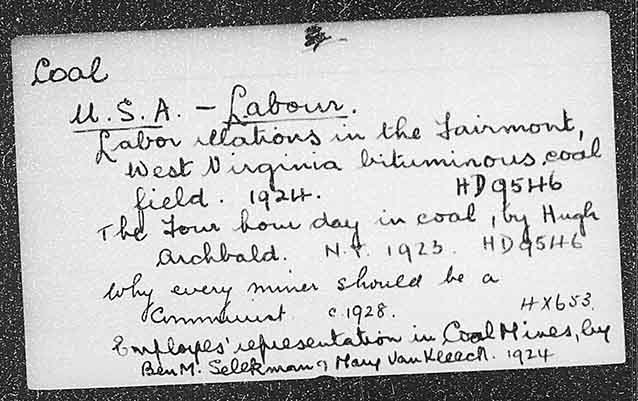 Coal
U.S.A. - Labour.
Labor relations in the Fairmont,
West Virginia bituminous coal
field. 1924. HD9546
The Four hour day in coal, by Hugh
Archbald. N.Y. 1923. HD9546
Why every miner should be a
Communist c.1928. HX653.
Employes' representation in Coal Mines, by
Ben M. Selekman & Mary Van Kleeck. 1924